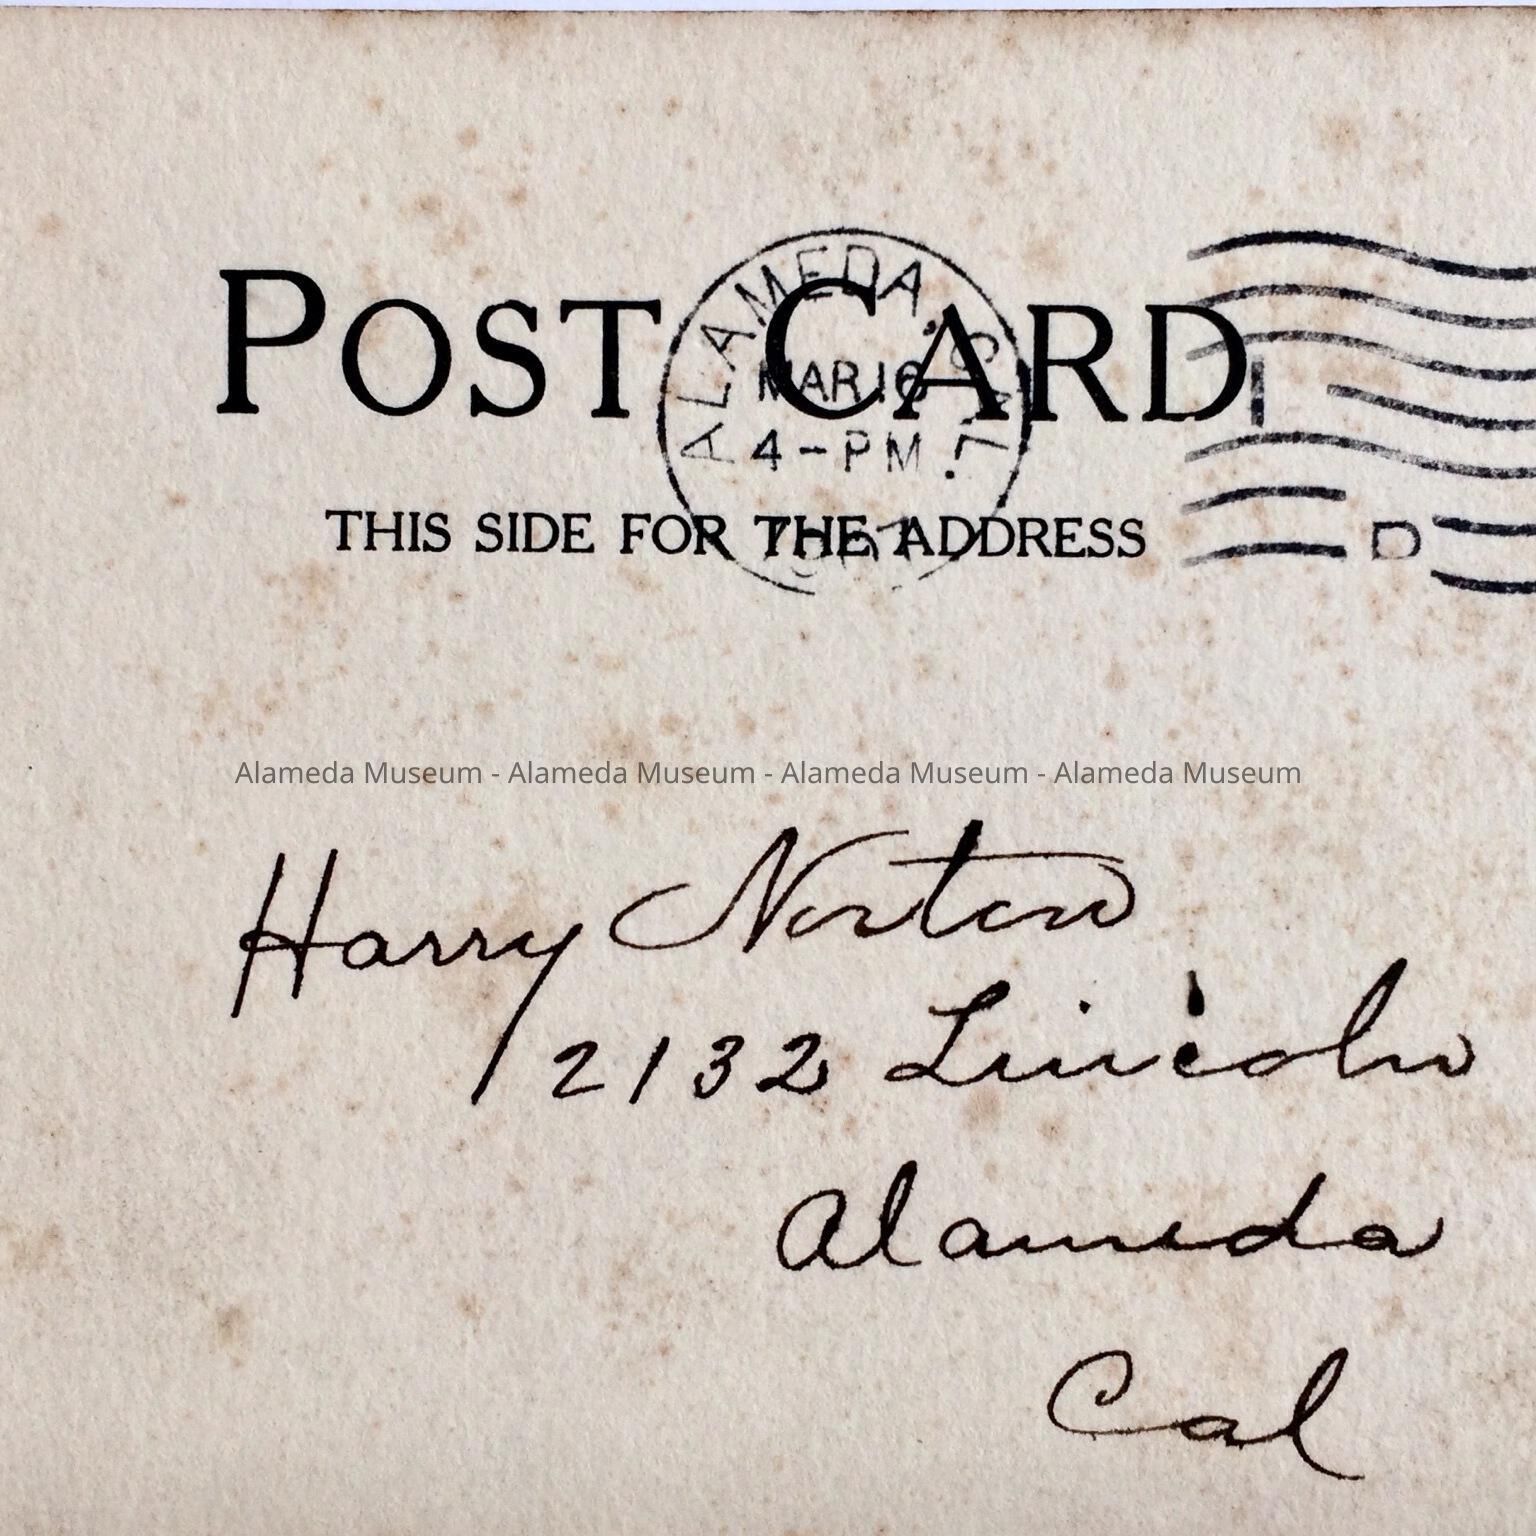 POST CARD
ALAMEDA. CAL.
MAR 16
4-PM
THIS SIDE FOR THE ADDRESS
D
Alameda Museum - Alameda Museum - Alameda Museum - Alameda Museum
Harry Norton
2132 Lincoln
Alameda
Cal